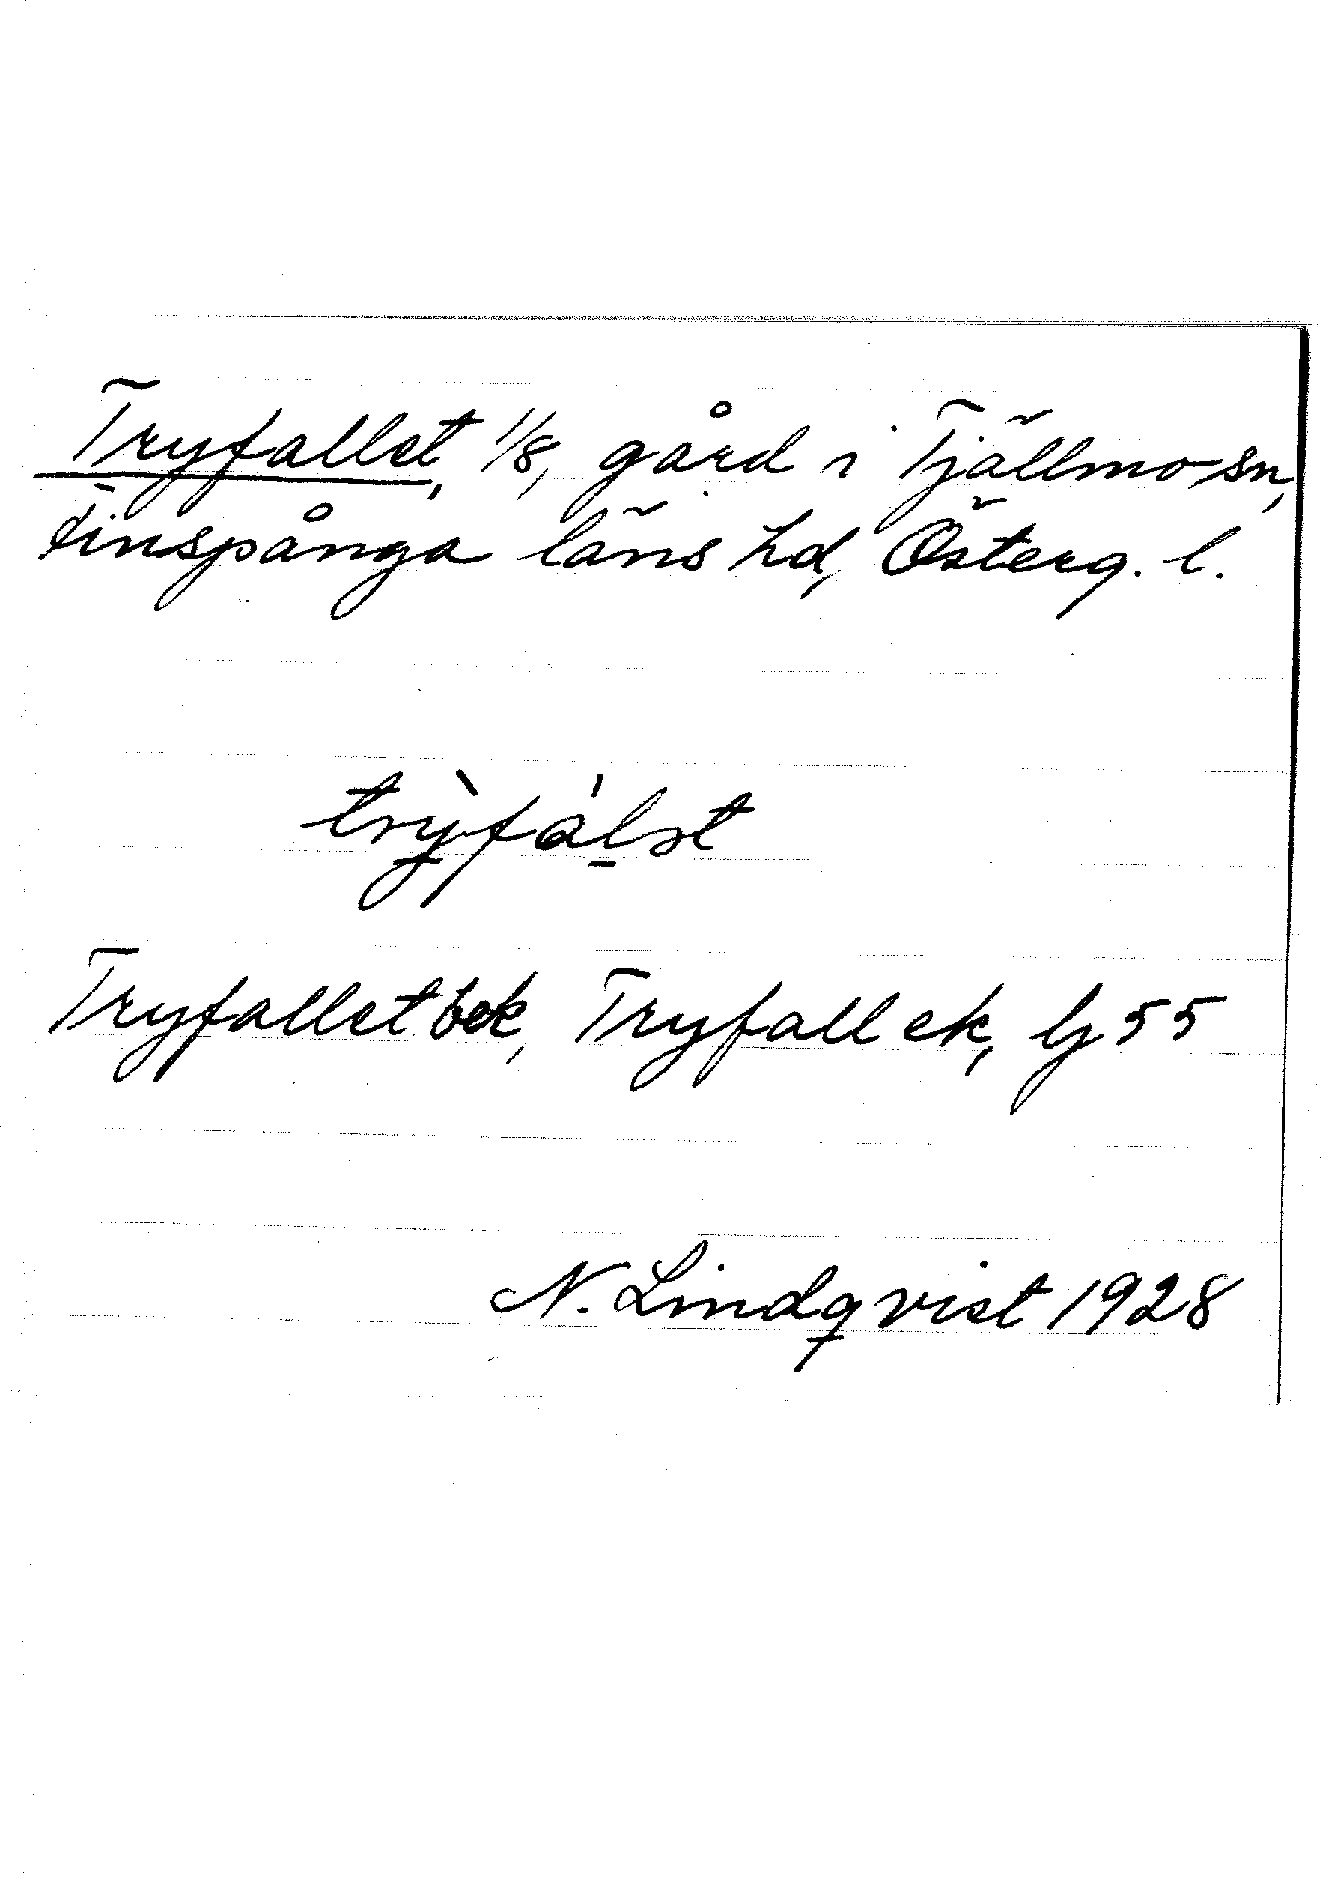 Tryfallet, 1/8, gård i Tjällmo sn,
Finspånga läns hd, Österg. l.
trỳfál̲st
Tryfallet bok, Tryfall ek, lj 55
N. Lindqvist 1928